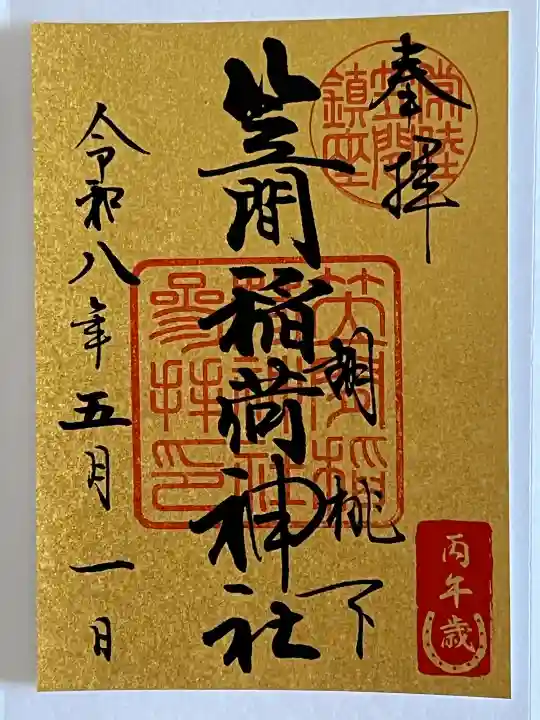 奉拝
常陸
笠間
鎮座
胡桃下
笠間稲荷神社
笠間稲
荷神社
参拝印
令和八年五月一日
丙午歳